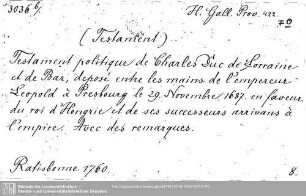 3036 b/.
H. Gall. Prov. 422
70
(Testament)
Testament politique de Charles Duc de Lorraine
et de Bar, deposé entre les mains de l'empereur
Leopold à Presbourg le 29. Novembre 1687. en faveur
du roi d'Hongrie et de ses successeurs arrivans à
l'empire. Avec des remarques.
Ratisbonne 1760.
8.